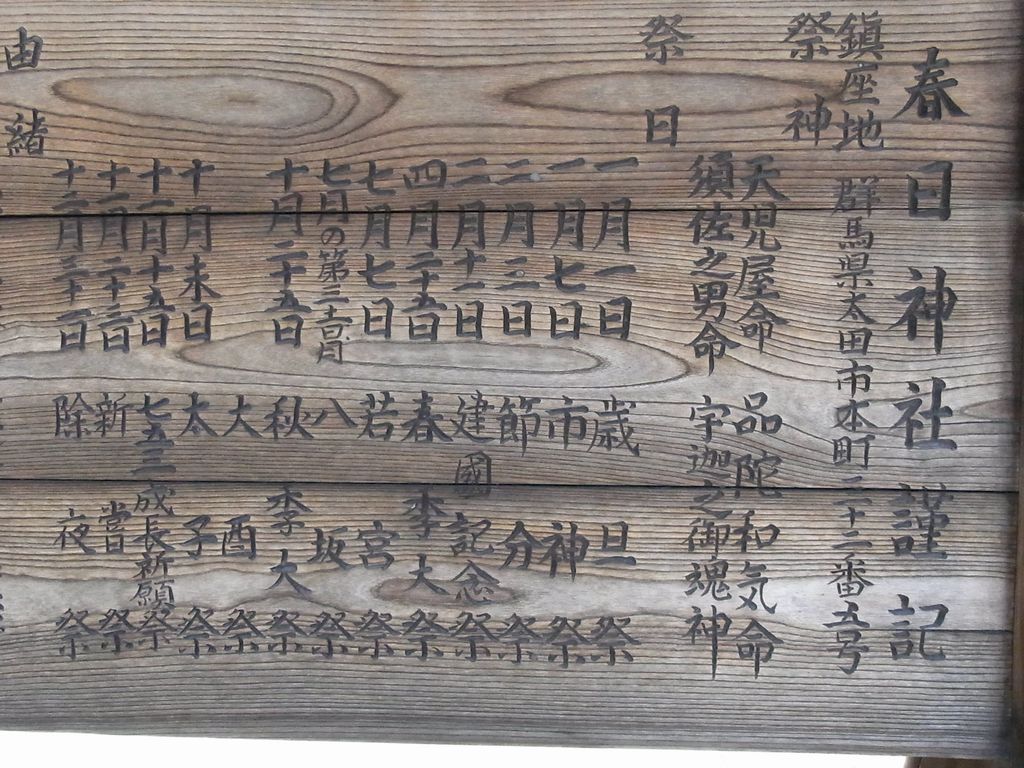 春日神社謹記
鎮座地 群馬県太田市本町二十二番五号
祭神 天児屋命 品陀和気命
須佐之男命 宇迦之御魂神
祭日 一月一日 歳旦祭
一月七日 市神祭
二月三日 節分祭
二月十一日 建國記念祭
四月二十五日 春季大祭
七月七日 若宮祭
七月の第三土日月 八坂祭
十月二十五日 秋季大祭
大酉祭
十月末日 太子祭
十一月十五日 七五三成長祈願祭
十一月二十三日 新嘗祭
十二月三十一日 除夜祭
由緒